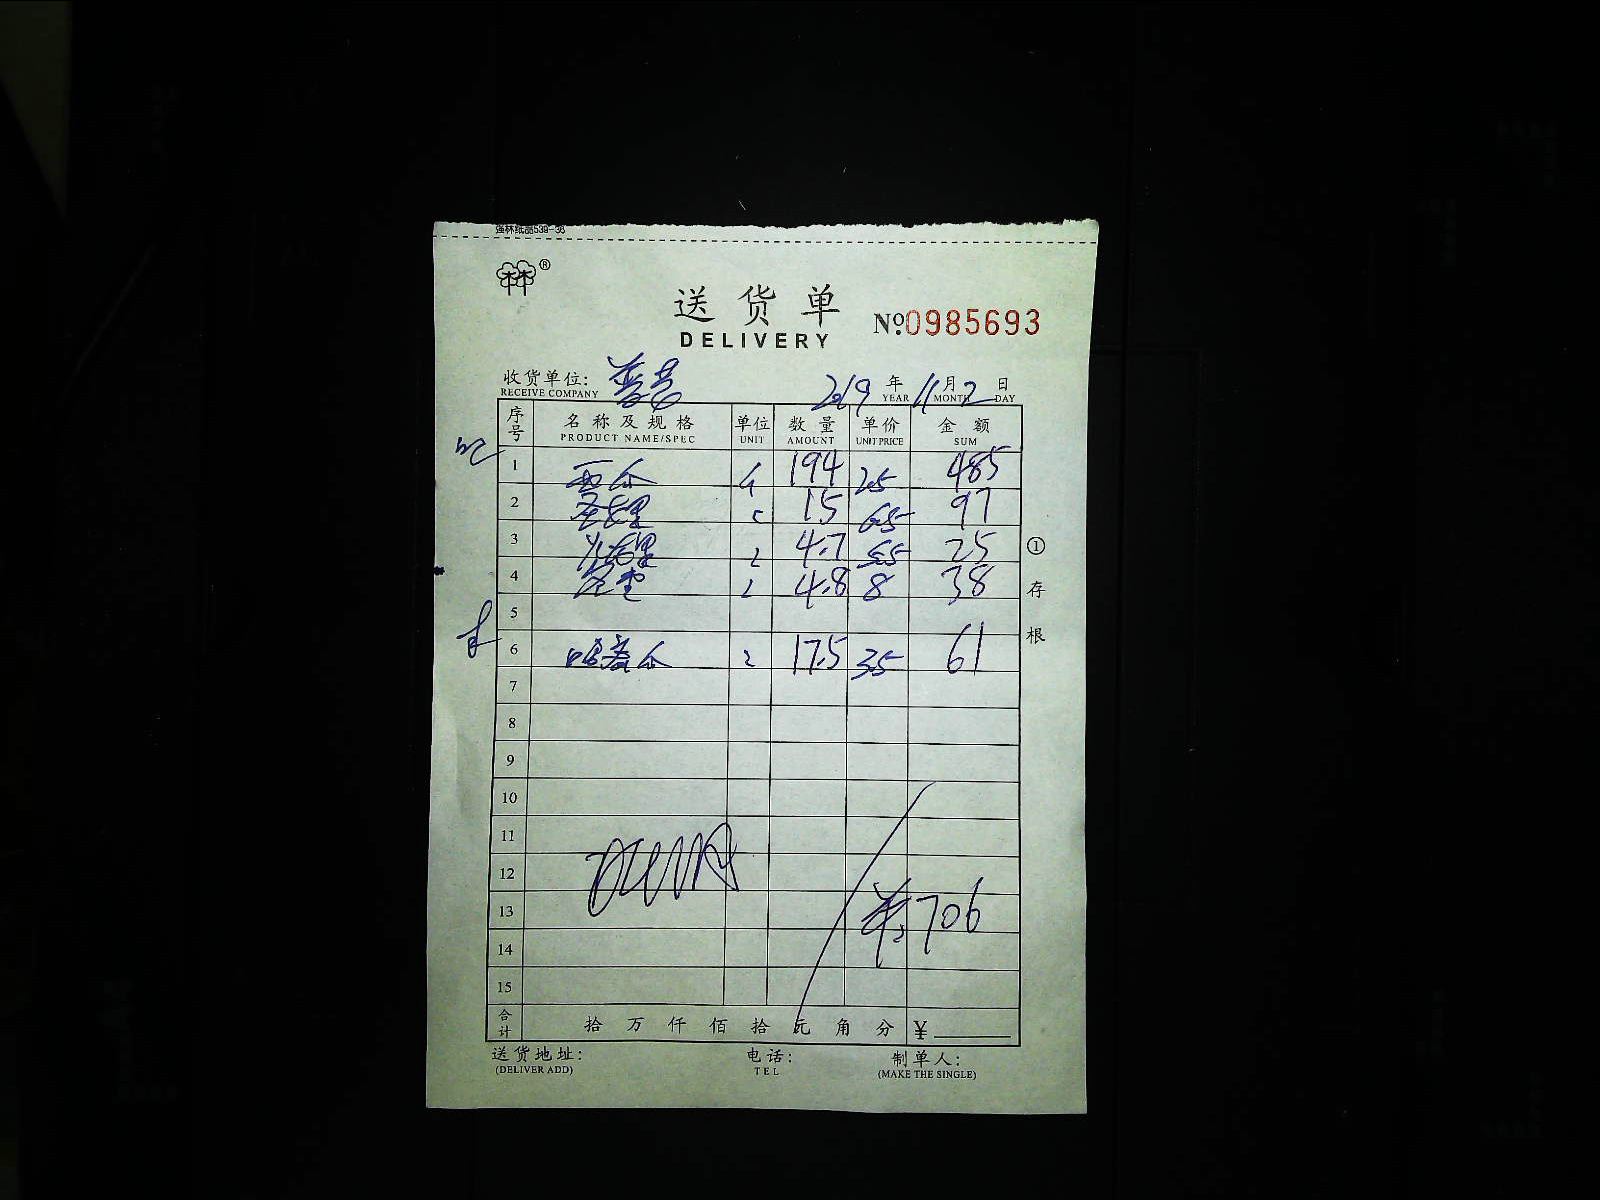 强林纸品539-36
林®
送货单
DELIVERY
№:0985693
收货单位:
RECEIVE COMPANY
2019 年 11 月 2 日
YEAR MONTH DAY
序号 名称及规格 单位 数量 单价 金额
PRODUCT NAME/SPEC UNIT AMOUNT UNIT PRICE SUM
1 西瓜 194 2.5 485
2 15 6.5 97
3 4.7 5.5 25
4 4.8 8 38
5
6 哈密瓜 17.5 3.5 61
7
8
9
10
11
12
13 706
14
15
合计 拾 万 仟 佰 拾 元 角 分 ¥
①存根
送货地址: 电话: 制单人:
(DELIVER ADD) TEL (MAKE THE SINGLE)